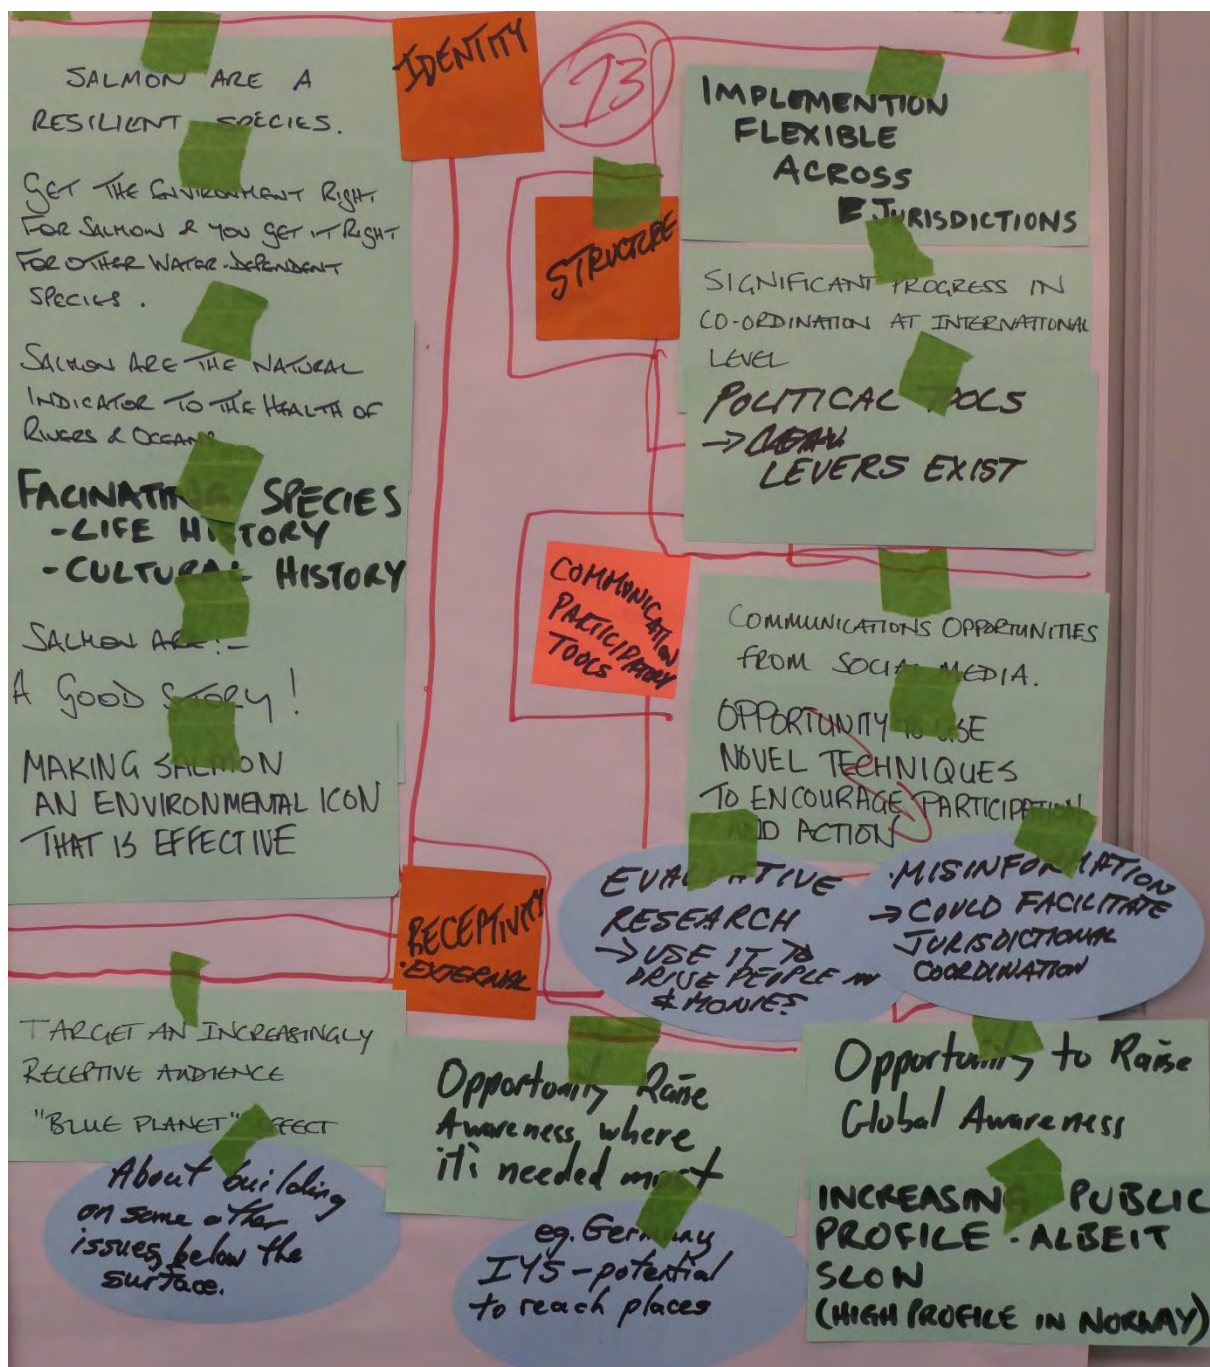 IDENTITY
SALMON ARE A
RESILIENT SPECIES.
GET THE ENVIRONMENT RIGHT
FOR SALMON & YOU GET IT RIGHT
FOR OTHER WATER-DEPENDENT
SPECIES.
SALMON ARE THE NATURAL
INDICATOR TO THE HEALTH OF
RIVERS & OCEANS
FACINATING SPECIES
-LIFE HISTORY
-CULTURAL HISTORY
SALMON ARE:-
A GOOD STORY!
MAKING SALMON
AN ENVIRONMENTAL ICON
THAT IS EFFECTIVE
13
STRUCTURE
IMPLEMENTION
FLEXIBLE
ACROSS
JURISDICTIONS
SIGNIFICANT PROGRESS IN
CO-ORDINATION AT INTERNATIONAL
LEVEL
POLITICAL TOOLS
→
LEVERS EXIST
COMMUNICATION
PARTICIPATORY
TOOLS
COMMUNICATIONS OPPORTUNITIES
FROM SOCIAL MEDIA.
OPPORTUNITY TO USE
NOVEL TECHNIQUES
TO ENCOURAGE PARTICIPATION
AND ACTION
EVALUATIVE
RESEARCH
→ USE IT TO
DRIVE PEOPLE IN
& MONIES
·MISINFORMATION
→ COULD FACILITATE
JURISDICTIONAL
COORDINATION
RECEPTIVITY
·EXTERNAL
TARGET AN INCREASINGLY
RECEPTIVE AUDIENCE
"BLUE PLANET" EFFECT
About building
on some other
issues, below the
surface.
Opportunity Raise
Awareness, where
it's needed most
eg. Germany
IYS - potential
to reach places
Opportunity to Raise
Global Awareness
INCREASING PUBLIC
PROFILE - ALBEIT
SLOW
(HIGH PROFILE IN NORWAY)